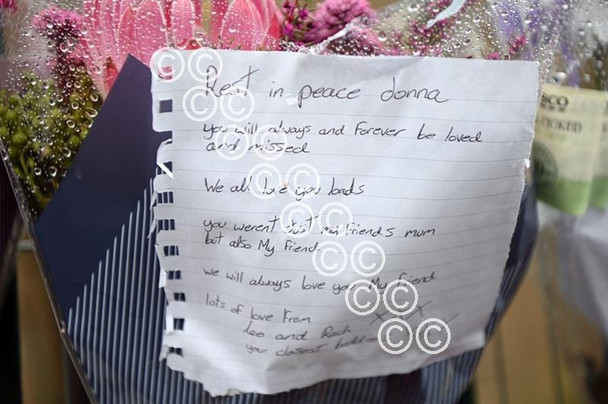 Rest in peace donna
you will always and Forever be loved
and missed
We all love you loads
you werent Just my friends mum
but also My friend
we will always love you My friend
XXX
lots of love From
Leo and Roch
you closest
CO
ICKED